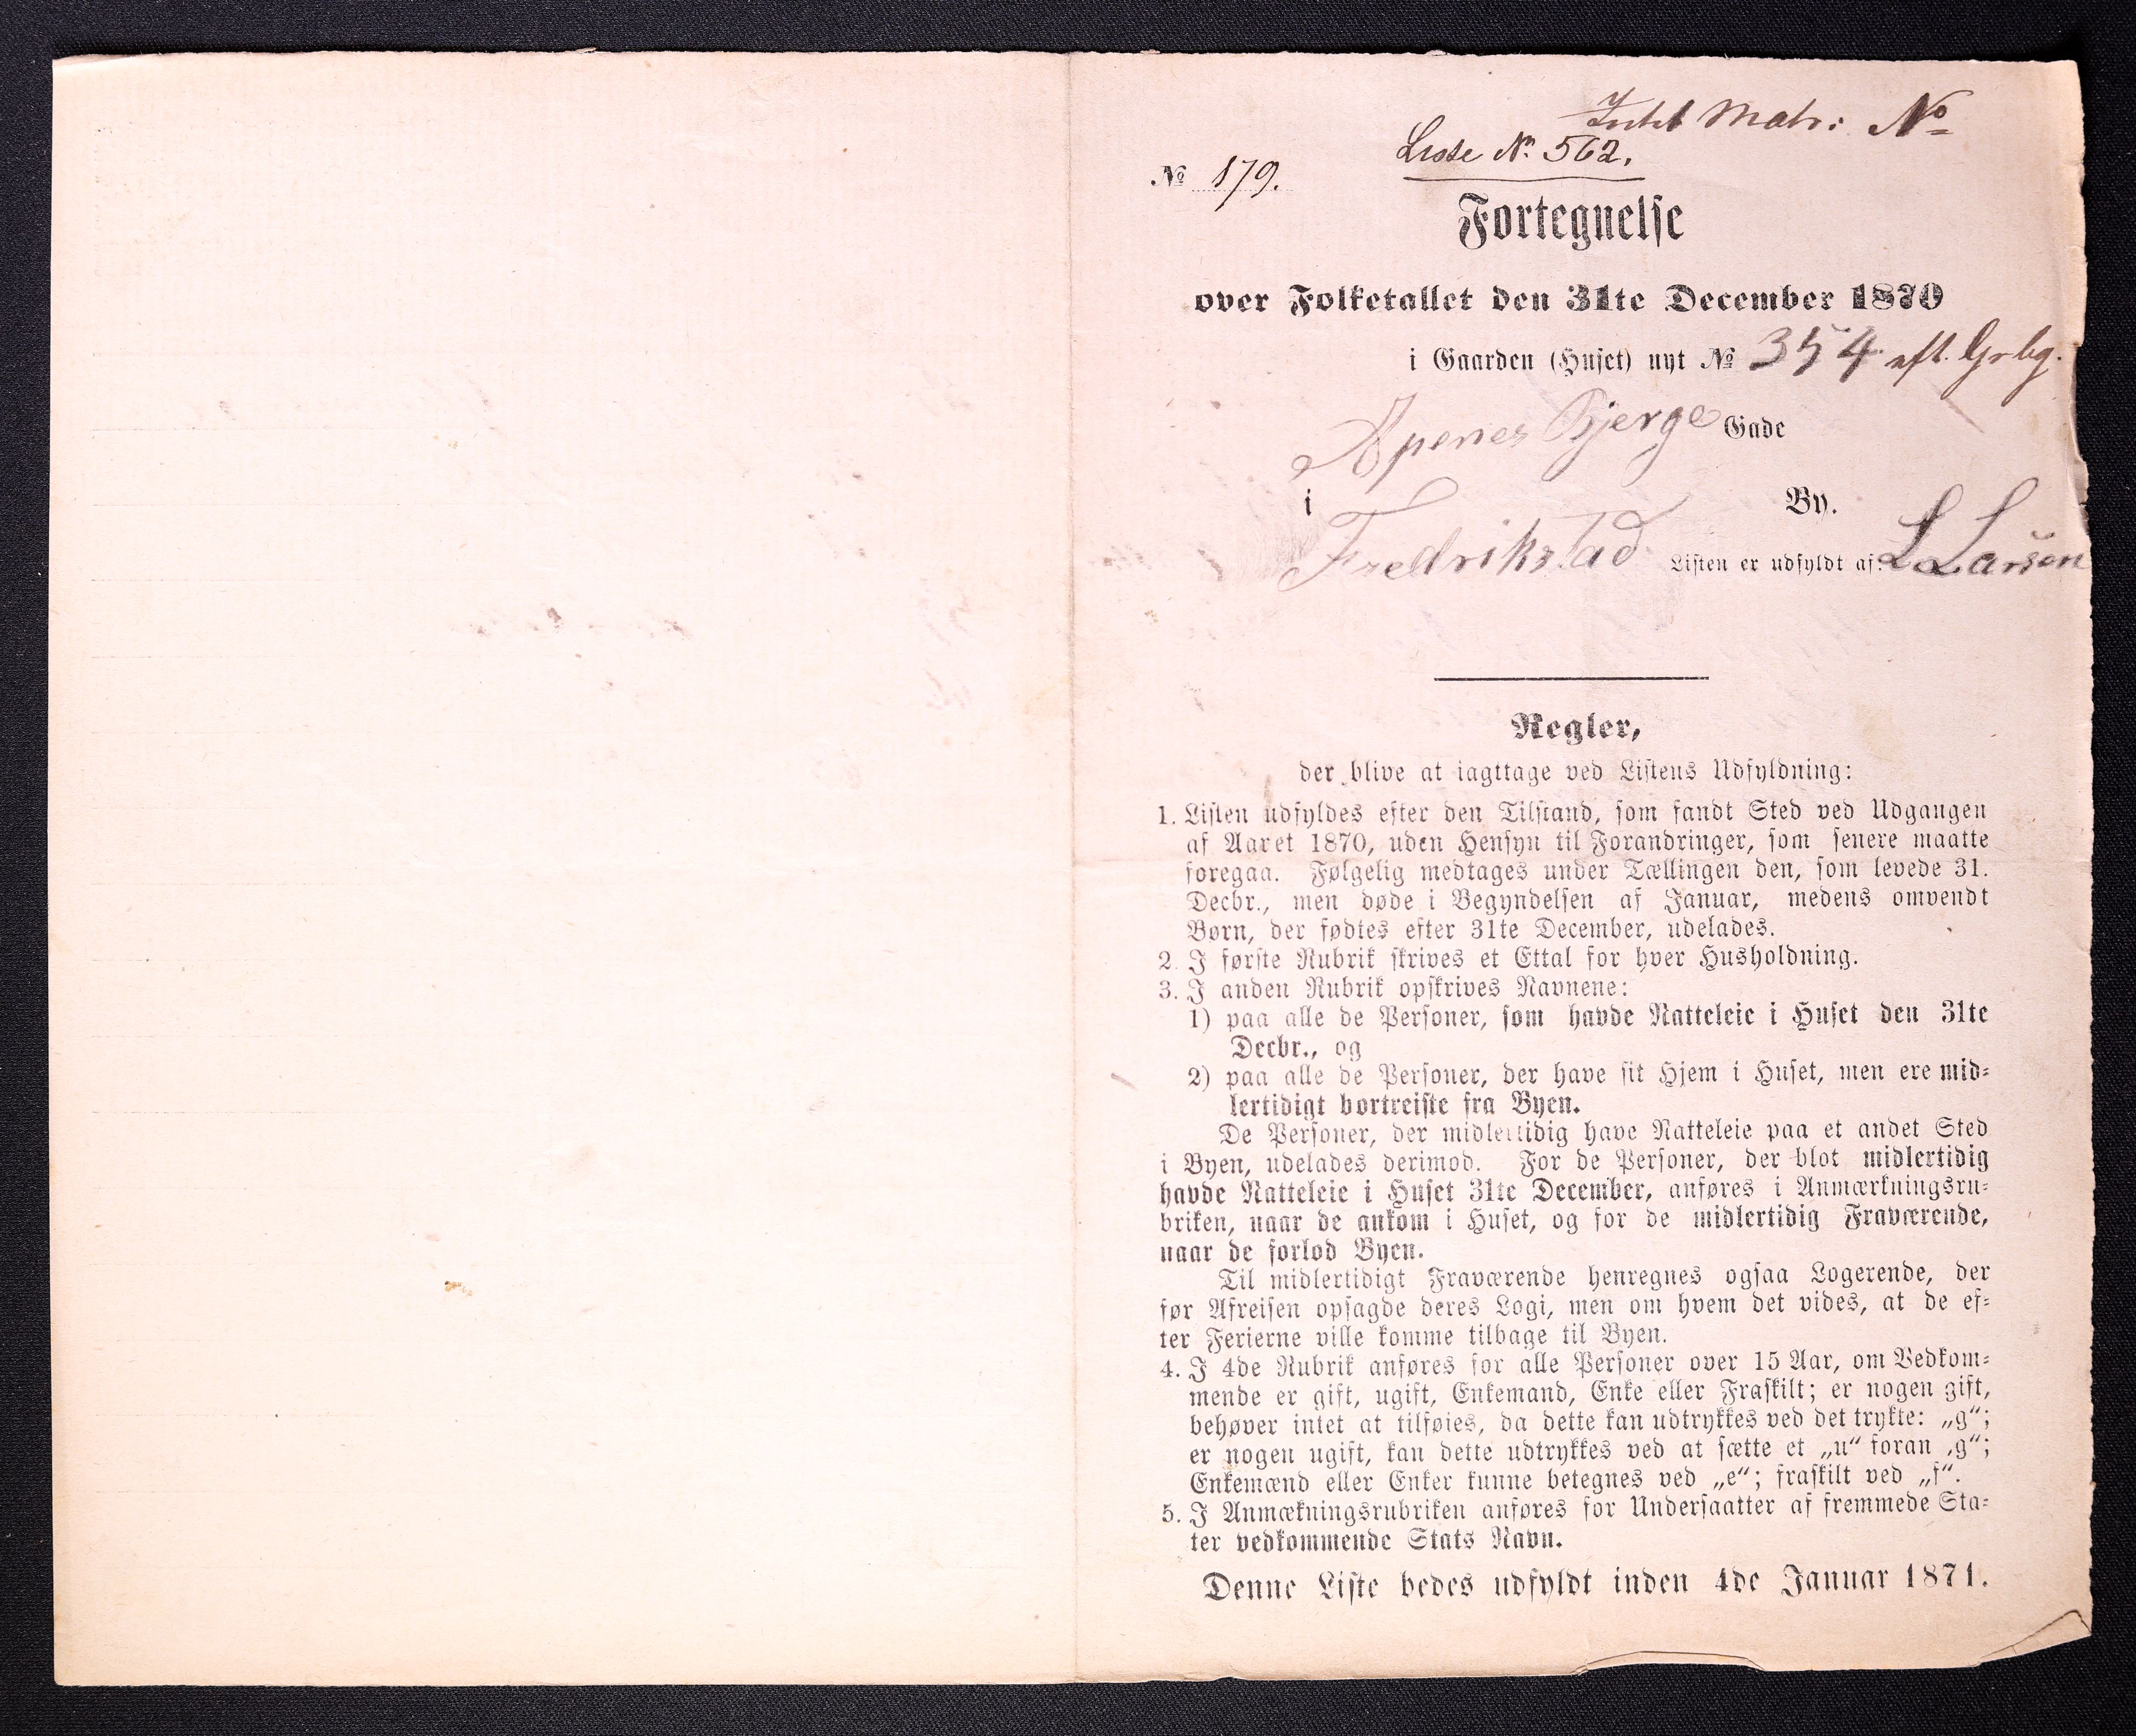 Intet Matr: No
Liste No. 562.
No 179.
Fortegnelse
over Folketallet den 31te December 1870
i Gaarden (Huset) nyt No 354 eft. Grbg.
Apenes Bjerge Gade
i Fredrikstad By.
Listen er udfyldt af: L Larsen
Regler,
der blive at iagttage ved Listens Udfyldning:
1. Listen udfyldes efter den Tilstand, som fandt Sted ved Udgangen
af Aaret 1870, uden Hensyn til Forandringer, som senere maatte
foregaa. Følgelig medtages under Tællingen den, som levede 31.
Decbr., men døde i Begyndelsen af Januar, medens omvendt
Børn, der fødtes efter 31te December, udelades.
2. I første Rubrik skrives et Ettal for hver Husholdning.
3. I anden Rubrik opskrives Navnene:
1) paa alle de Personer, som havde Natteleie i Huset den 31te
Decbr., og
2) paa alle de Personer, der have sit Hjem i Huset, men ere mid-
lertidigt bortreiste fra Byen.
De Personer, der midlertidig have Natteleie paa et andet Sted
i Byen, udelades derimod. For de Personer, der blot midlertidig
havde Natteleie i Huset 31te December, anføres i Anmærkningsru-
briken, naar de ankom i Huset, og for de midlertidig Fraværende,
naar de forlod Byen.
Til midlertidigt Fraværende henregnes ogsaa Logerende, der
før Afreisen opsagde deres Logi, men om hvem det vides, at de ef-
ter Ferierne ville komme tilbage til Byen.
4. I 4de Rubrik anføres for alle Personer over 15 Aar, om Vedkom-
mende er gift, ugift, Enkemand, Enke eller Fraskilt; er nogen gift,
behøver intet at tilføies, da dette kan udtrykkes ved det trykte: „g“;
er nogen ugift, kan dette udtrykkes ved at sætte et „u“ foran „g“;
Enkemænd eller Enker kunne betegnes ved „e“; fraskilt ved „f“.
5. I Anmækningsrubriken anføres for Undersaatter af fremmede Sta-
ter vedkommende Stats Navn.
Denne Liste bedes udfyldt inden 4de Januar 1871.